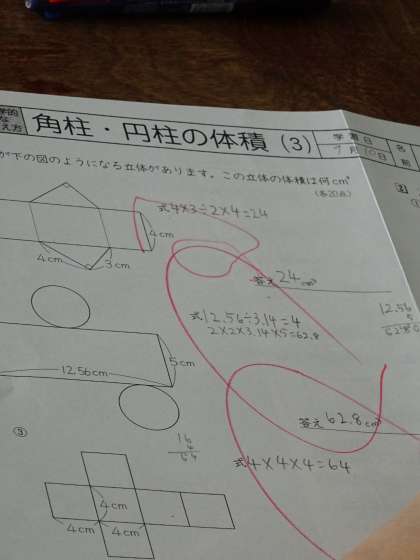 角柱・円柱の体積(3)
学習日
9月10日
名前
が下の図のようになる立体があります。この立体の体積は何cm³
(各20点)
式4×3÷2×4=24
4cm
4cm
3cm
答え24cm³
式12.56÷3.14=4
2×2×3.14×5=62.8
12.56
5
5cm
12.56cm
答え62.8cm³
③
16
4
64
式4×4×4=64
4cm
4cm
4cm